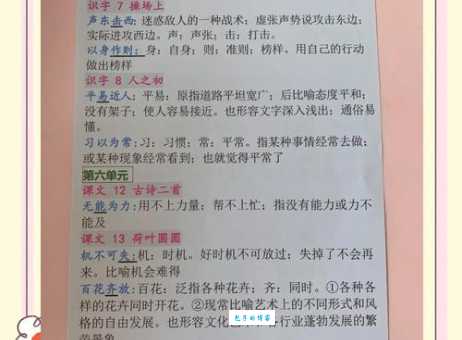 识字 7 操场上
声东击西: 迷惑敌人的一种战术; 虚张声势说攻击东边;
实际进攻西边。声; 声张; 击; 打击。
以身作则; 身; 自身; 则; 准则; 榜样。用自己的行动
做出榜样
识字 8 人之初
平易近人; 平易; 原指道路平坦宽广; 后比喻态度平和;
没有架子; 使人容易接近。也形容文字深入浅出; 通俗易
懂。
习以为常; 习; 习惯; 常; 平常。指某种事情经常去做;
或某种现象经常看到; 也就觉得平常了
第六单元
课文 12 古诗二首
无能为力: 用不上力量; 帮不上忙; 指没有能力或力不
能及
课文 13 荷叶圆圆
机不可失; 机; 时机。好时机不可放过; 失掉了不会再
来。比喻机会难得
百花齐放; 百花; 泛指各种花卉; 齐; 同时。①各种各
样的花卉同时开花。②现常比喻艺术上的不同形式和风
格的自由发展。也形容文化 行业蓬勃发展的繁
荣景象